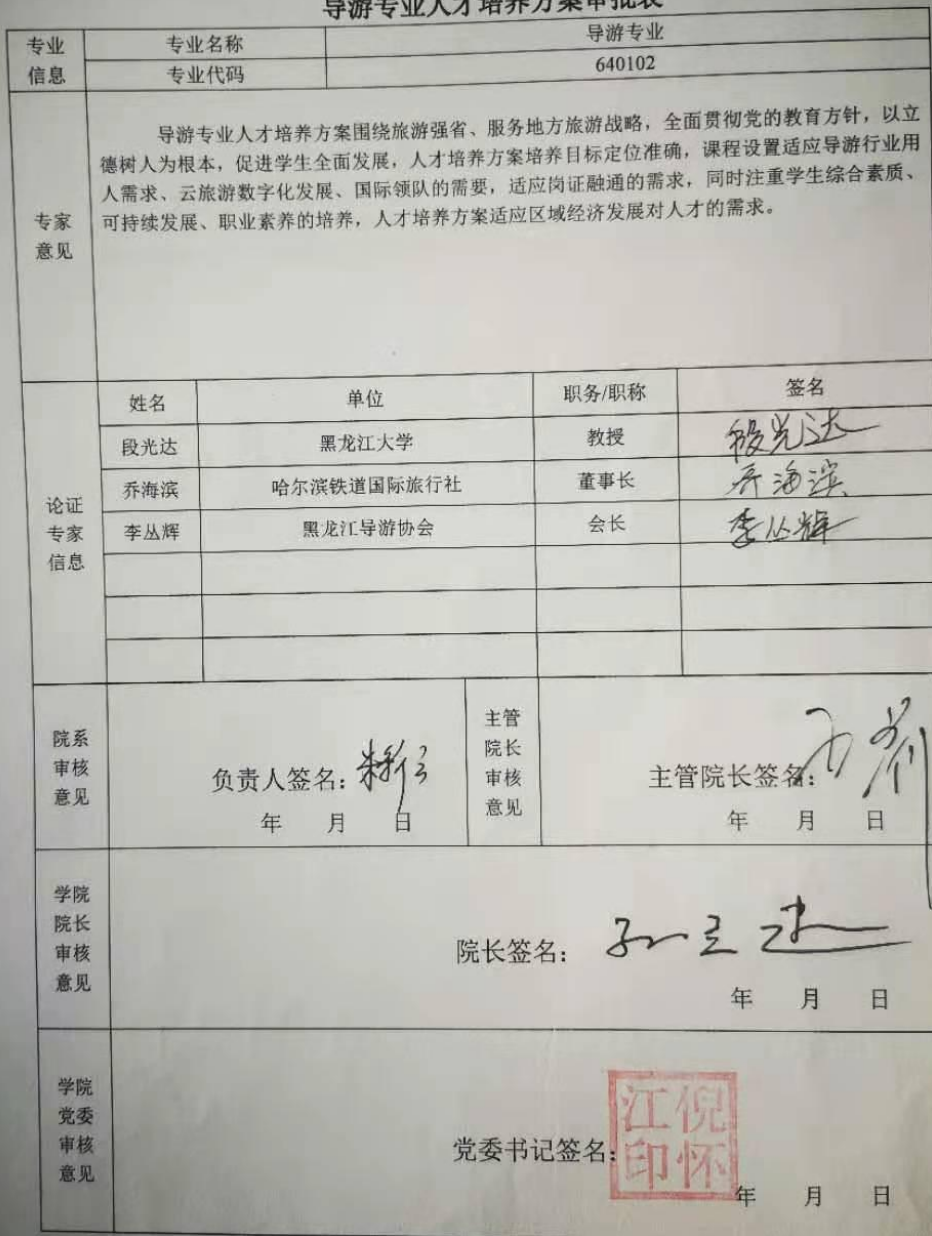 导游专业人才培养方案审批表
专业信息
专业名称
导游专业
专业代码
640102
专家意见
导游专业人才培养方案围绕旅游强省、服务地方旅游战略，全面贯彻党的教育方针，以立
德树人为根本，促进学生全面发展，人才培养方案培养目标定位准确，课程设置适应导游行业用
人需求、云旅游数字化发展、国际领队的需要，适应岗证融通的需求，同时注重学生综合素质、
可持续发展、职业素养的培养，人才培养方案适应区域经济发展对人才的需求。
论证专家信息
姓名 单位 职务/职称 签名
段光达 黑龙江大学 教授 段光达
乔海滨 哈尔滨铁道国际旅行社 董事长 乔海滨
李丛辉 黑龙江导游协会 会长 李丛辉
院系审核意见
负责人签名：
年 月 日
主管院长审核意见
主管院长签名：
年 月 日
学院院长审核意见
院长签名：
年 月 日
学院党委审核意见
党委书记签名：
倪怀江印
年 月 日